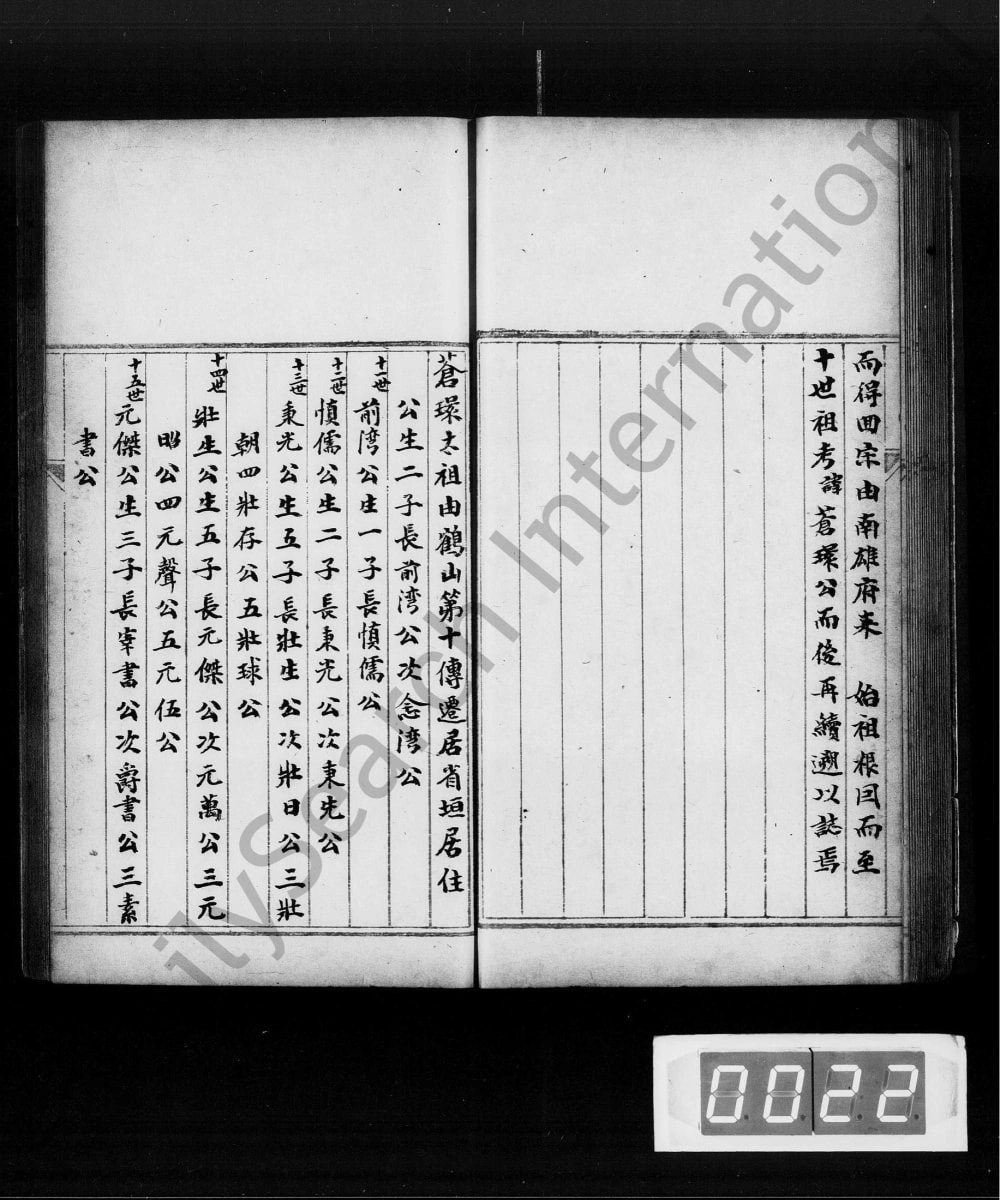 而得回宗由南雄府来 始祖根因而至
十世祖考諱蒼環公而後再續遡以誌焉
蒼環太祖由鶴山第十傳遷居省垣居住
公生二子長前湾公次念湾公
十一世 前湾公生一子長慎儒公
十二世 慎儒公生二子長秉光公次秉先公
十三世 秉光公生五子長壯生公次壯日公三壯
朝四壯存公五壯球公
十四世 壯生公生五子長元傑公次元萬公三元
昭公四元聲公五元伍公
十五世 元傑公生三子長宰書公次爵書公三素
書公
0022
ilySearch Internation